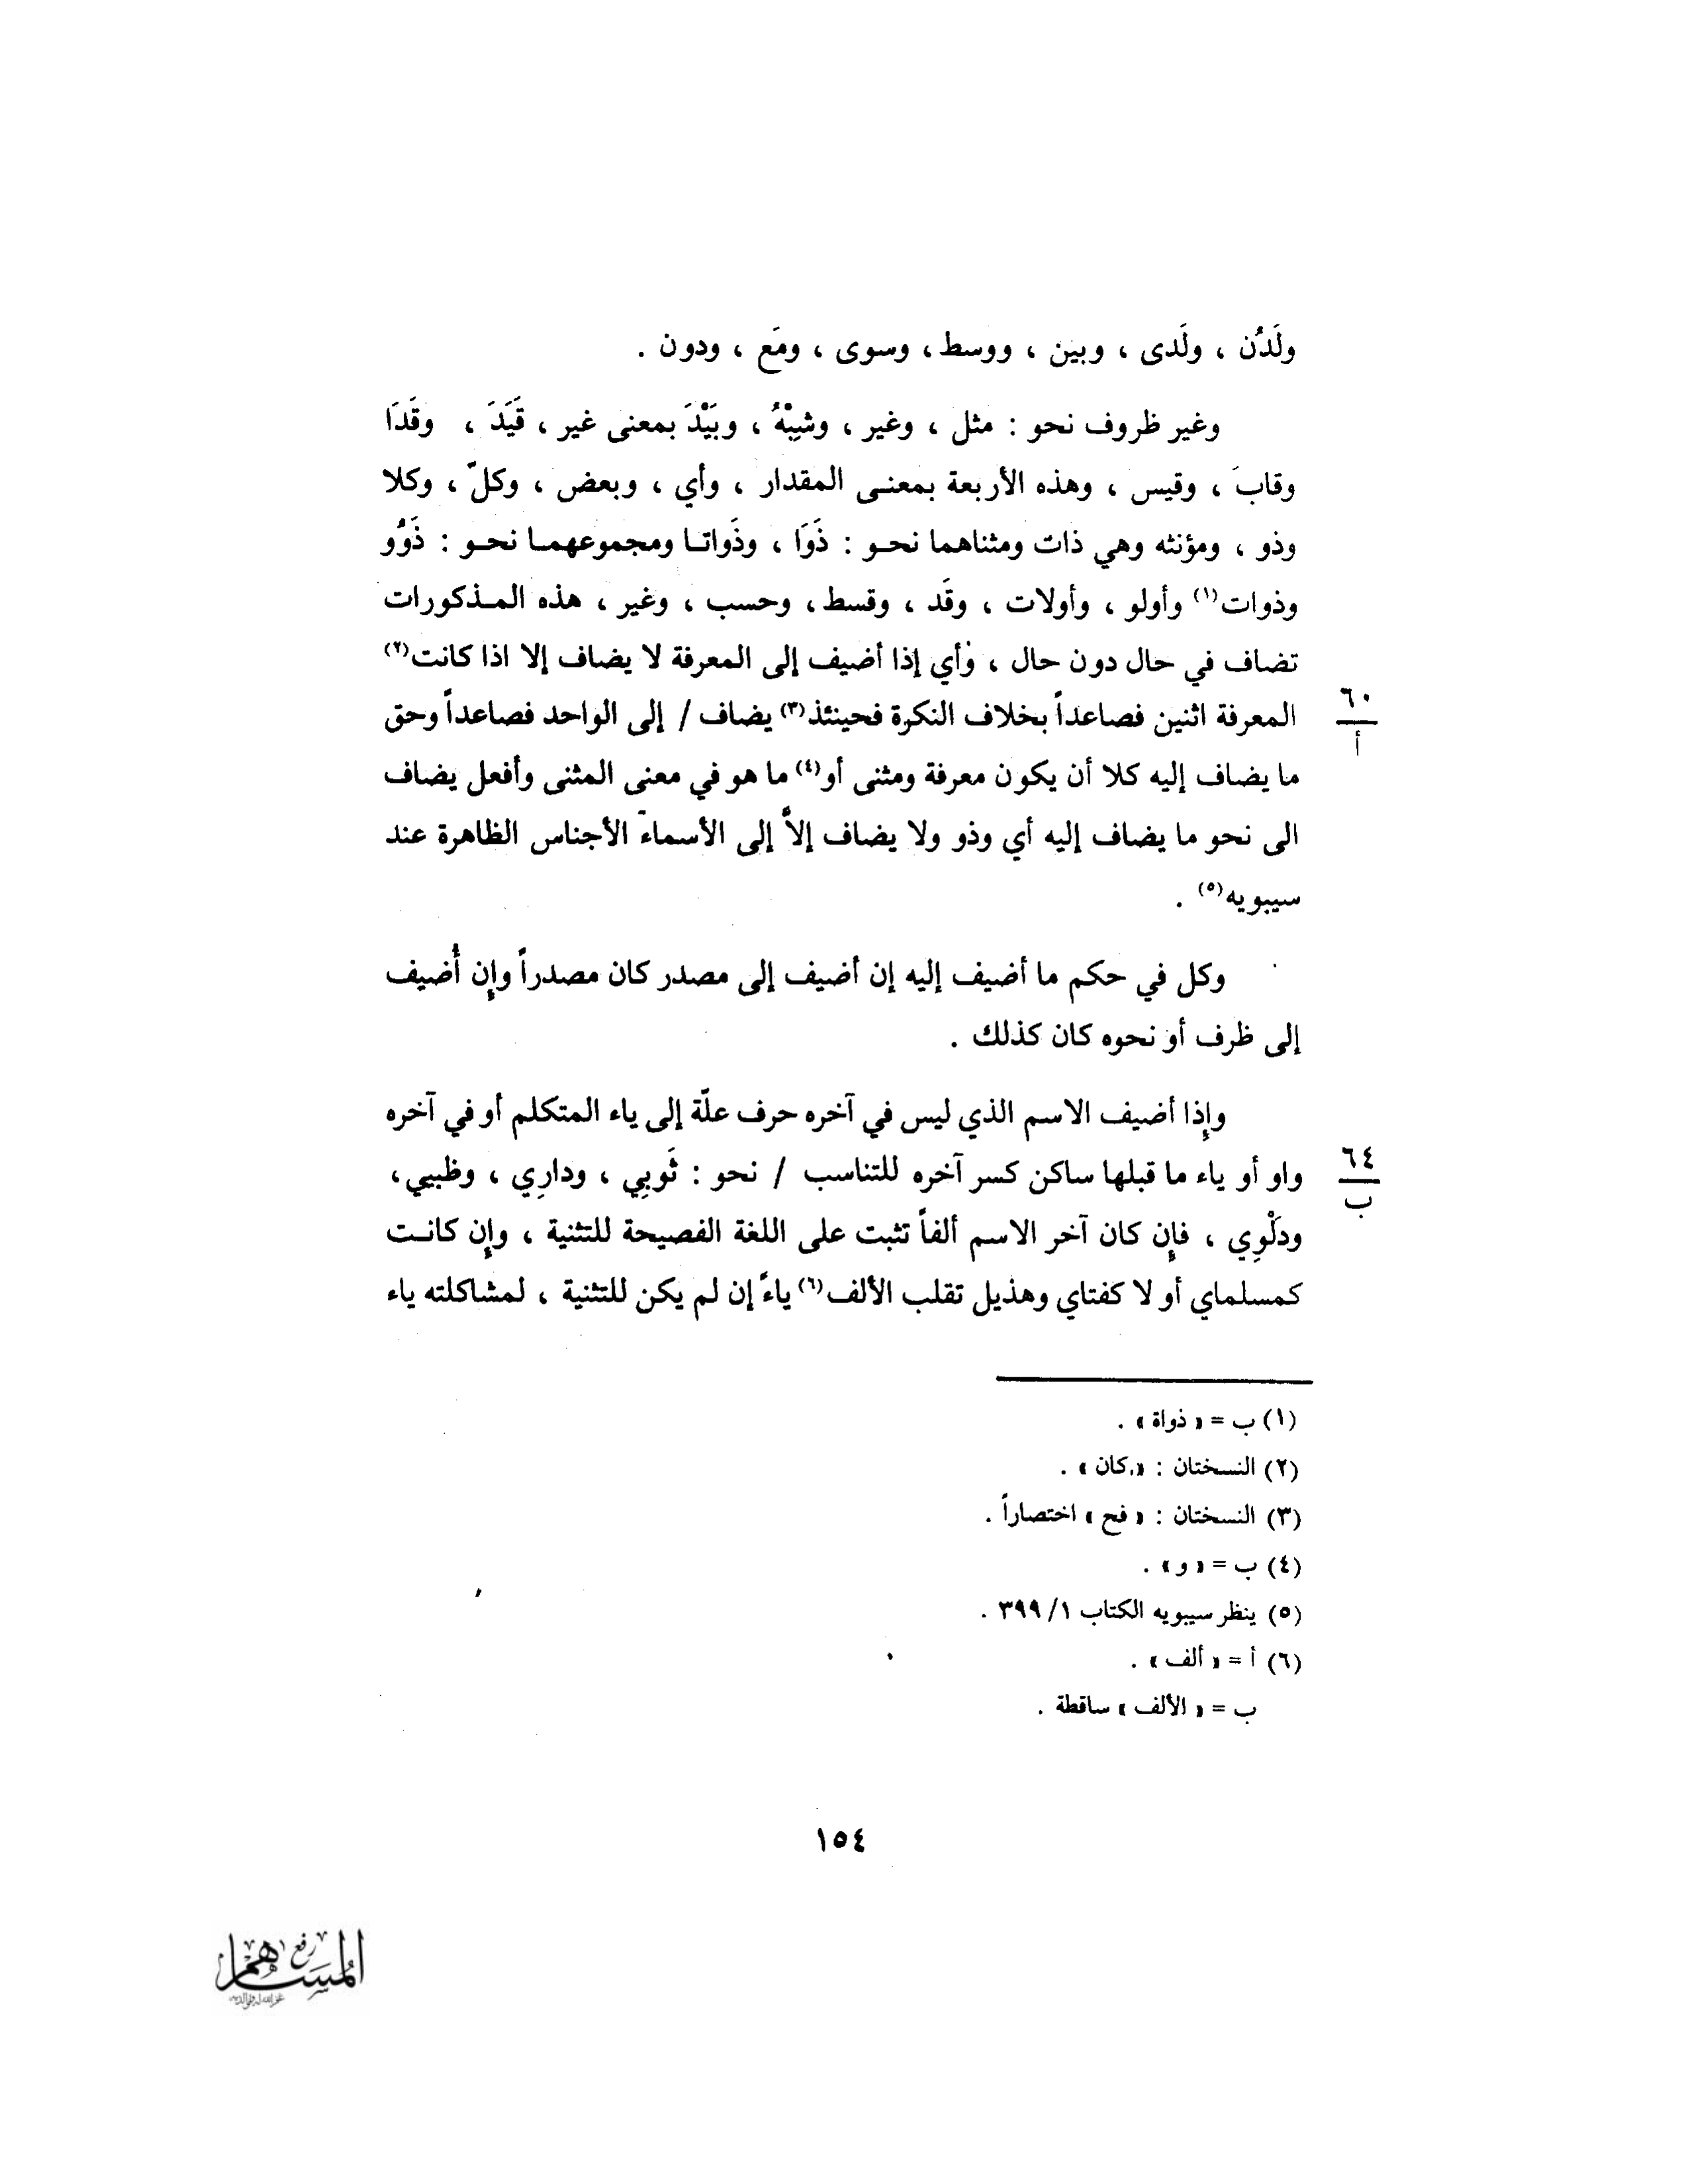 ولَدُن ، ولَدى ، وبين ، ووسط ، وسوى ، ومَع ، ودون .
وغير ظروف نحو : مثل ، وغير ، وشِبْهُ ، وبَيْدَ بمعنى غير ، قَيَدَ ، وقَدَا
وقابَ ، وقيس ، وهذه الأربعة بمعنـى المقدار ، وأي ، وبعض ، وكلّ ، وكلا
وذو ، ومؤنثه وهي ذات ومثناهما نحـو : ذَوَا ، وذَواتـا ومجموعهمـا نحـو : ذَوُو
وذوات(١) وأولو ، وأولات ، وقَد ، وقسط ، وحسب ، وغير ، هذه المـذكورات
تضاف في حال دون حال ، وأي إذا أضيف إلى المعرفة لا يضاف إلا اذا كانت(٢)
المعرفة اثنين فصاعداً بخلاف النكرة فحينئذ(٣) يضاف / إلى الواحد فصاعداً وحق
٦٠
أ
ما يضاف إليه كلا أن يكون معرفة ومثنى أو(٤) ما هو في معنى المثنى وأفعل يضاف
الى نحو ما يضاف إليه أي وذو ولا يضاف إلاّ إلى الأسماء الأجناس الظاهرة عند
سيبويه(٥) .
وكل في حكم ما أضيف إليه إن أضيف إلى مصدر كان مصدراً وإن أُضيف
إلى ظرف أو نحوه كان كذلك .
وإذا أضيف الاسم الذي ليس في آخره حرف علّة إلى ياء المتكلم أو في آخره
واو أو ياء ما قبلها ساكن كسر آخره للتناسب / نحو : ثَوبِي ، ودارِي ، وظبيي ،
٦٤
ب
ودَلْوِي ، فإن كان آخر الاسم ألفاً تثبت على اللغة الفصيحة للتثنية ، وإن كانـت
كمسلماي أو لا كفتاي وهذيل تقلب الألف(٦) ياءً إن لم يكن للتثنية ، لمشاكلته ياء
(١) ب = « ذواة » .
(٢) النسختان : « كان » .
(٣) النسختان : « فح » اختصاراً .
(٤) ب = « و » .
(٥) ينظر سيبويه الكتاب ١/ ٣٩٩ .
(٦) أ = « ألف » .
ب = « الألف » ساقطة .
١٥٤
رفع
المساهم